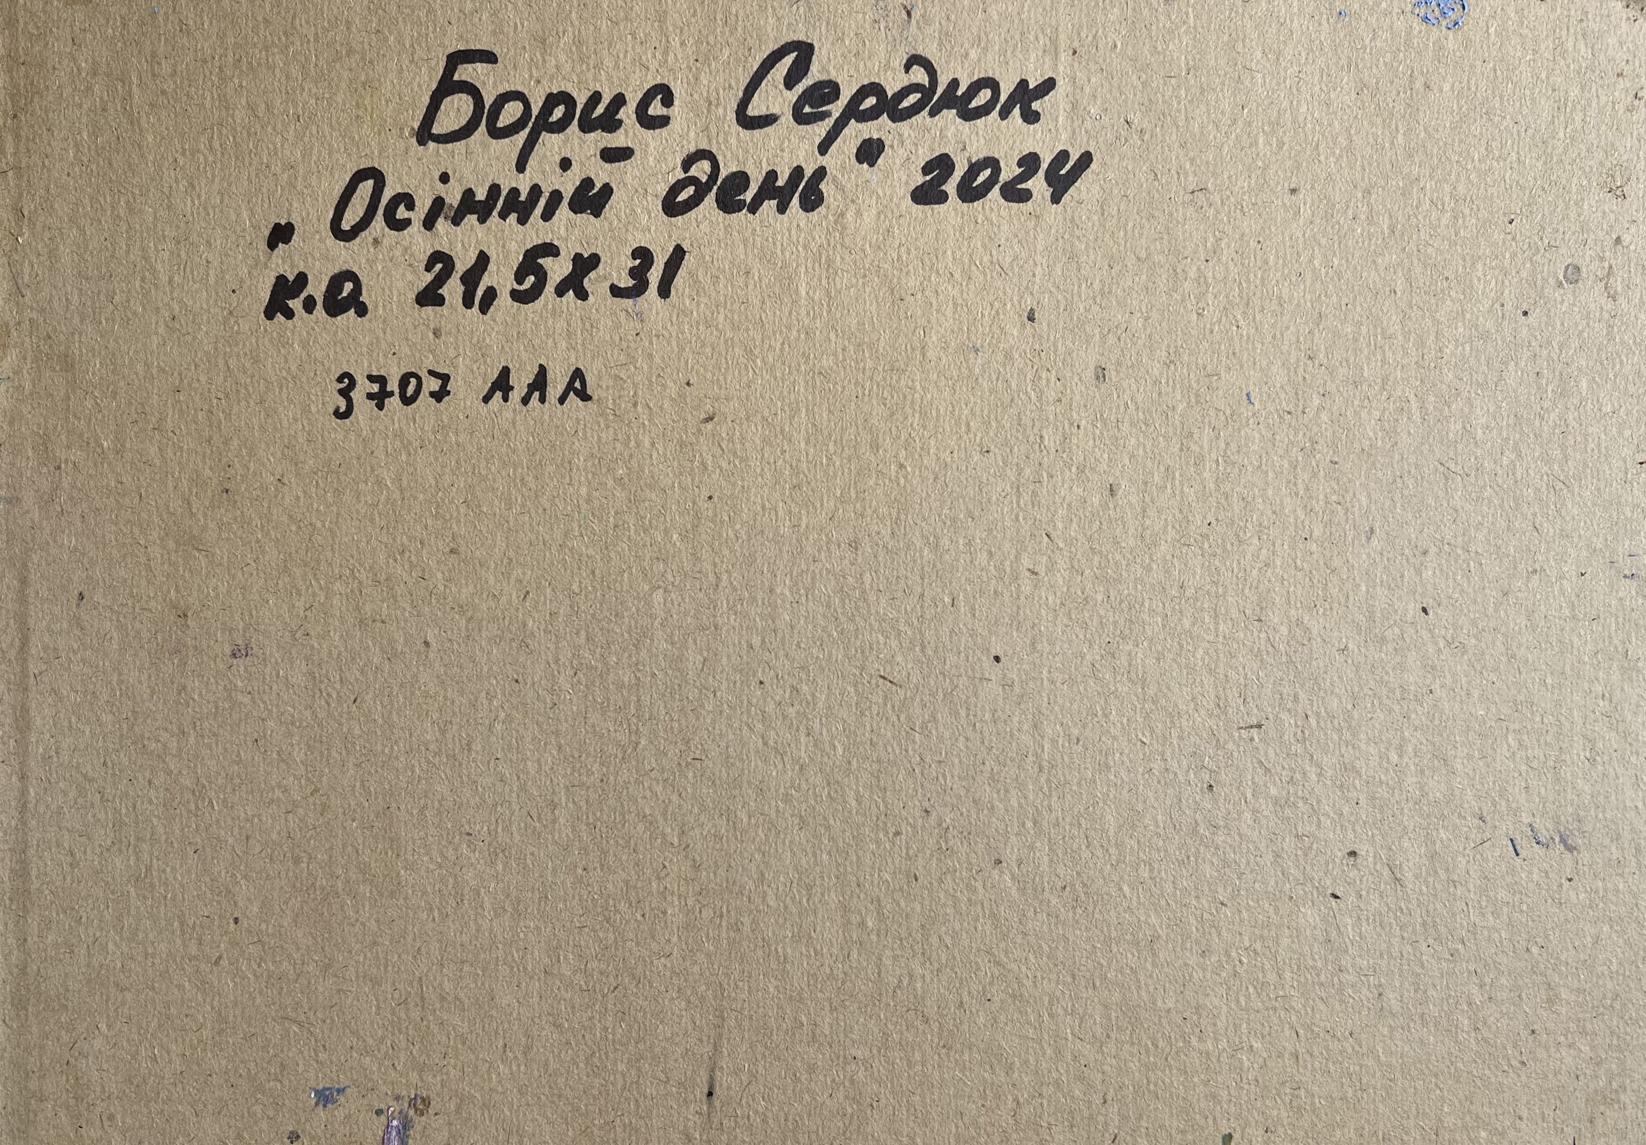 Борис Сердюк
„Осінній день" 2024
к.о. 21,5х31
3707 ААА